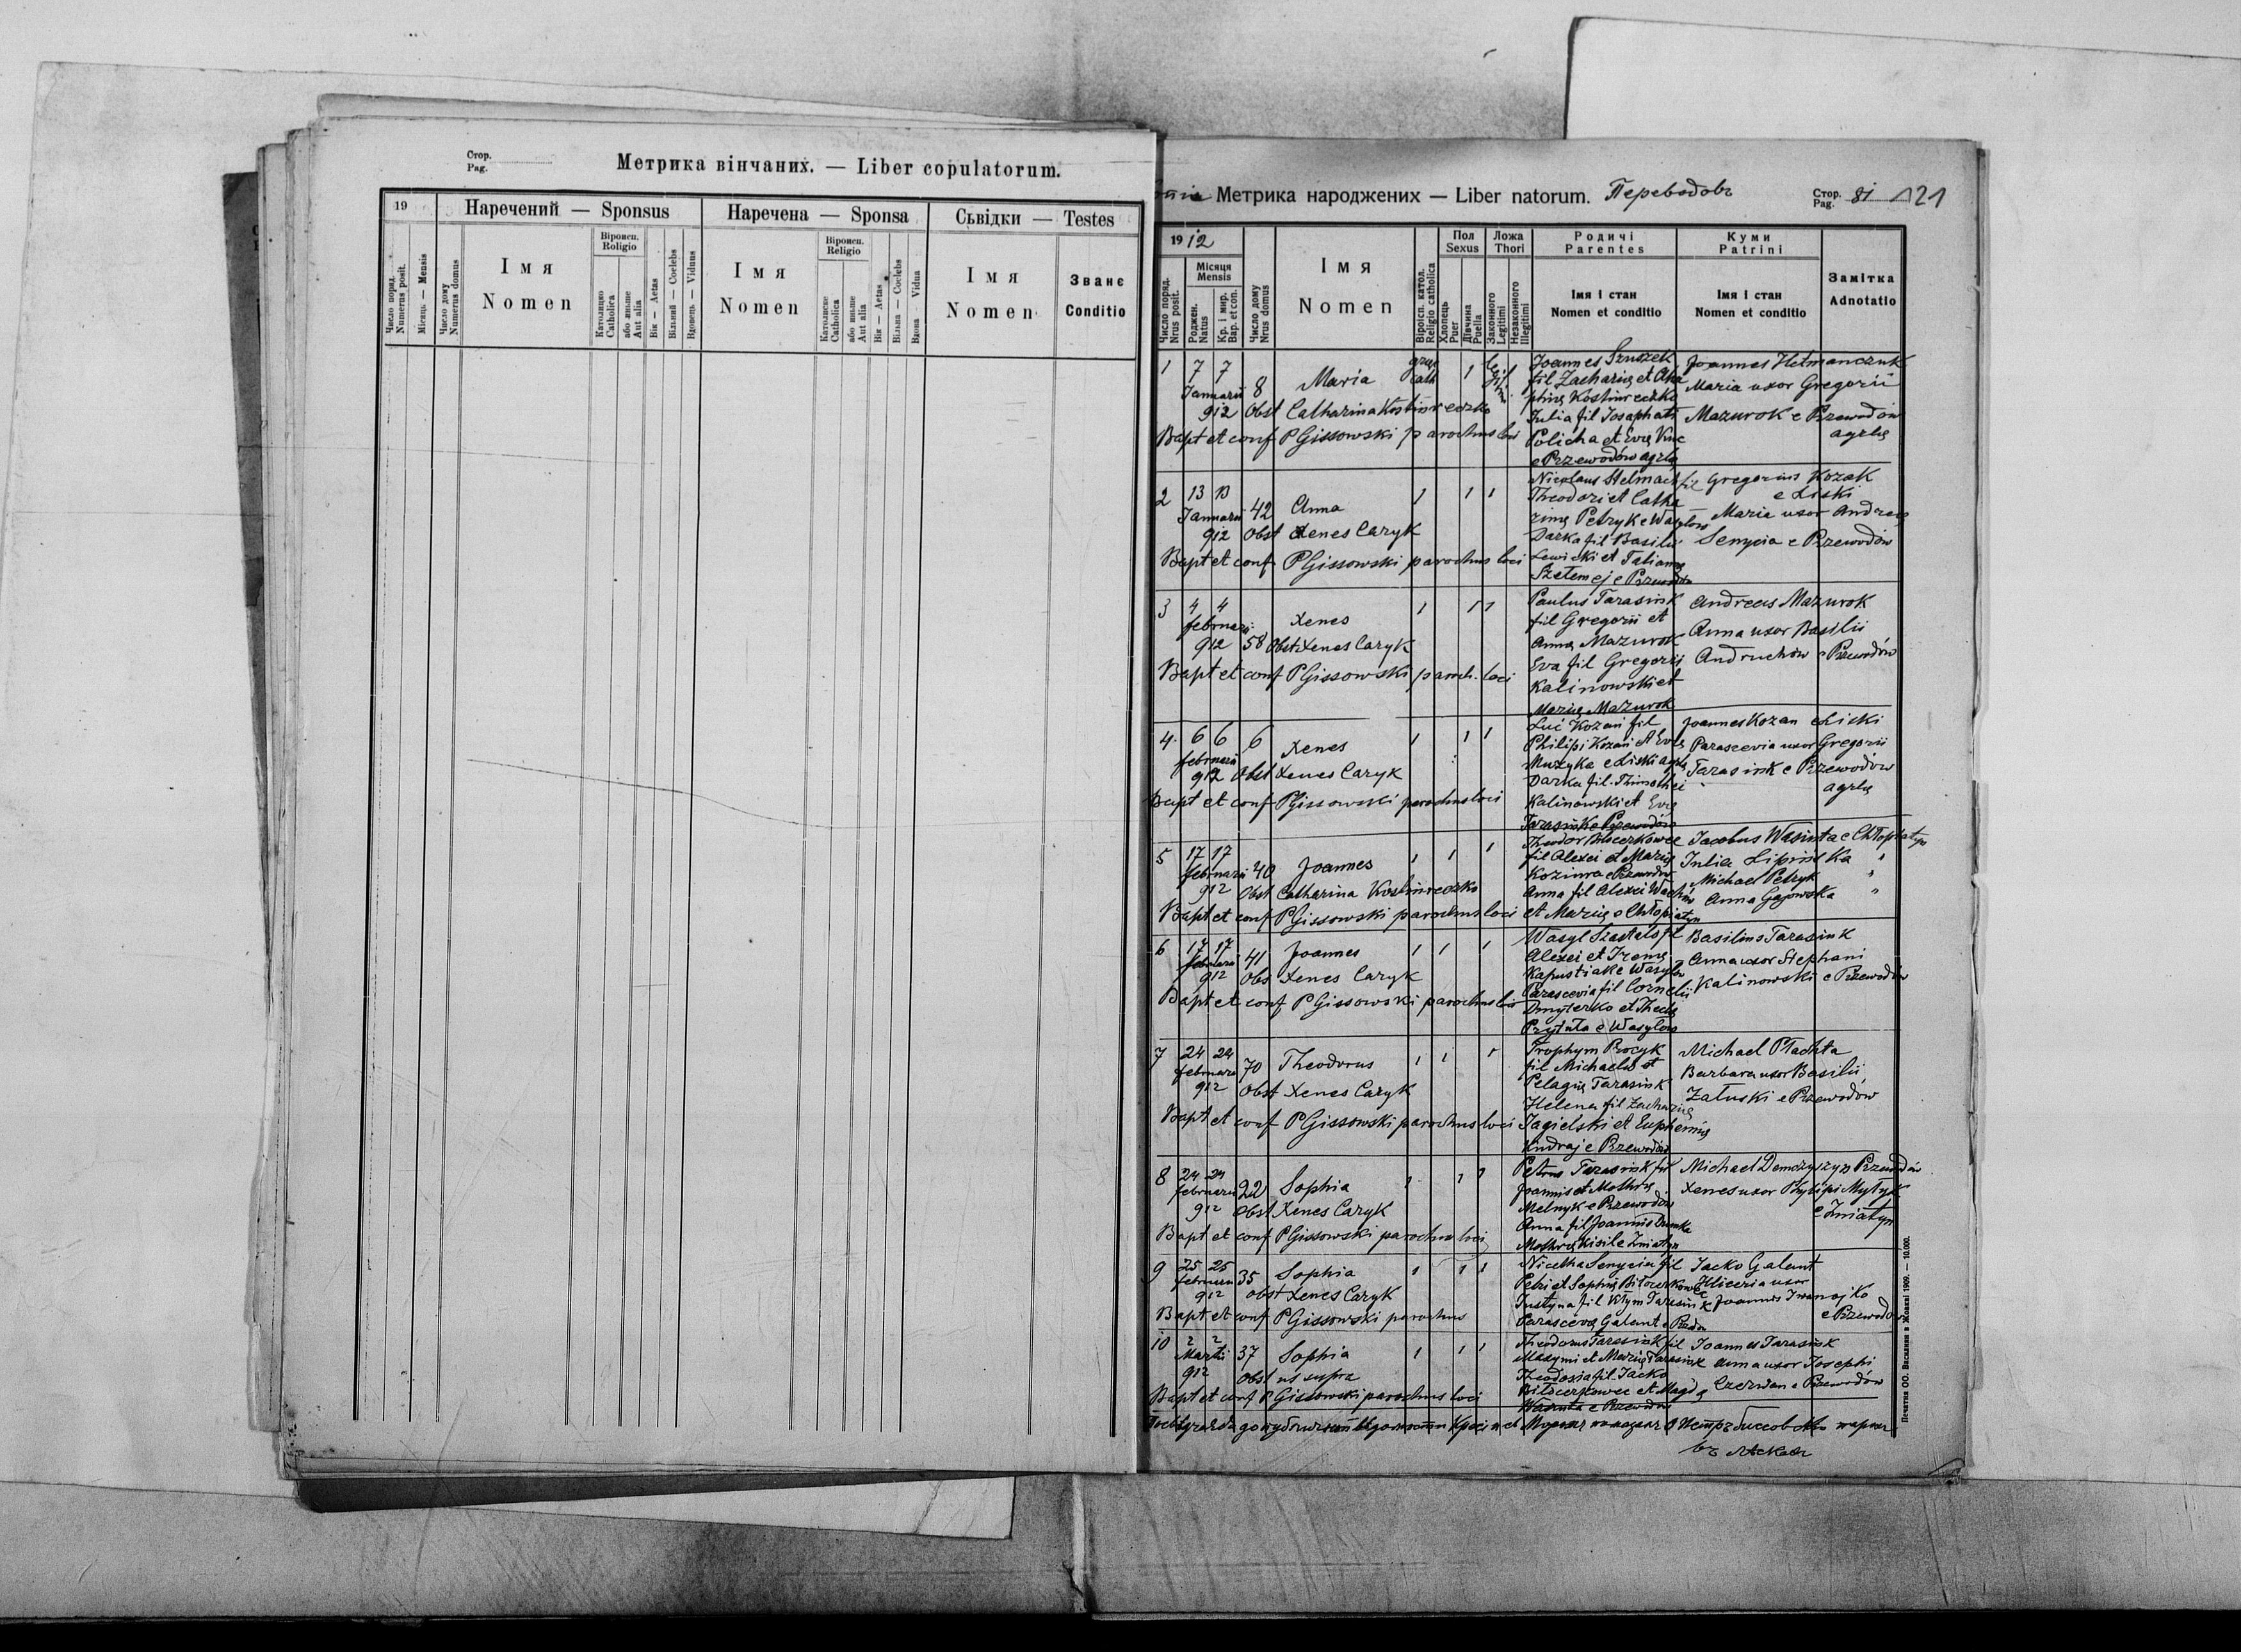 Стор.
Pag.
Метрика вінчаних. — Liber copulatorum.
19
Наречений — Sponsus
Наречена — Sponsa
Сьвідки — Testes
Число поряд.
Numerus posit.
Місяць — Mensis
Число дому
Numerus domus
Імя
Nomen
Віроисп.
Religio
Католицко
Catholica
або иньше
Aut alia
Вік — Aetas
Вільний — Coelebs
Вдовець — Viduus
Імя
Nomen
Віроисп.
Religio
Католицке
Catholica
або иньше
Aut alia
Вік — Aetas
Вільна — Coelebs
Вдова Vidua
Імя
Nomen
Званє
Conditio
Метрика народжених — Liber natorum. Переводовъ
Стор.
Pag. 81 121
1912
Число поряд.
Nrus posit.
Місяця
Mensis
Роджен.
Natus
Кр. і мир.
Bap. et con.
Число дому
Nrus domus
Імя
Nomen
Віроісп. катол.
Religio catholica
Пол
Sexus
Хлопець
Puer
Дівчина
Puella
Ложа
Thori
Законного
Legitimi
Незаконного
Illegitimi
Родичі
Parentes
Імя і стан
Nomen et conditio
Куми
Patrini
Імя і стан
Nomen et conditio
Замітка
Adnotatio
1 7 7 Januarii 912 8 Maria
Obst Catharina
Bapt et conf P Gissowski parochus loci
Joannes
fil Zacharię et
Julia fil Josaphati
Policha et Evę
e Przewodów agrlę
Joannes Hetmanczuk
Maria uxor Gregorii
Mazurok e Przewodów
agrlę
2 13 13 Januarii 912 42 Anna 1 1 1
Obst Xenes Caryk
Bapt et conf P Gissowski parochus loci
Nicolaus Stelmach fil
Theodori et Catha
rinę Petryk e Wasylow
Darka fil Basilii
Lewicki et Tatianę
e Przewodów
Gregorius Kozak
e Liski
Maria uxor Andreę
Senycia e Przewodów
3 4 4 februarii 912 58 Xenes 1 1 1
Obst Xenes Caryk
Bapt et conf P Gissowski paroch. loci
Paulus Tarasiuk
fil Gregorii et
Annę Mazurok
Eva fil Gregorii
Kalinowski et
Marię Mazurok
Andreas Mazurok
Anna uxor Basilii
Andruchów e Przewodów
4 6 6 februarii 912 6 Xenes 1 1 1
Obst Xenes Caryk
Bapt et conf P Gissowski parochus loci
Luć Kozan fil
Philipi Kozan et Evę
Muzyka e Liski agrlę
Darka fil. Thimothei
Kalinowski et Evę
Tarasiuk e Przewodów
Joannes Kozan e Liski
Parascevia uxor Gregorii
Tarasiuk e Przewodów
agrlę
5 17 17 februarii 912 40 Joannes 1 1 1
Obst Catharina
Bapt et conf P Gissowski parochus loci
Theodor
fil Alexei et Marię
e Przewodów
Anna fil Alexei
et Marię e Chłopiatyn
Jacobus e Chłopiatyn
Julia "
Michael Petryk "
Anna Gajowska "
6 17 17 februarii 912 41 Joannes 1 1 1
Obs Xenes Caryk
Bapt et conf P Gissowski parochus loci
Wasyl fil
Alexei et Irenę
Kapustiak e Wasylow
Parascevia fil Cornelii
Dmyterko et Theclę
Prytuła e Wasylow
Basilius Tarasiuk
Anna uxor Stephani
Kalinowski e Przewodów
7 24 24 februarii 912 70 Theodorus 1 1 1
Obst Xenes Caryk
Bapt et conf P Gissowski parochus loci
Trophym Procyk
fil Michaelis et
Pelagię Tarasiuk
Helena fil Zacharię
Jagielski et Euphemię
e Przewodów
Michael Płachta
Barbara uxor Basilii
Załuski e Przewodów
8 24 24 februarii 912 22 Sophia 1 1 1
Obst Xenes Caryk
Bapt et conf P Gissowski parochus loci
Petrus Tarasiuk fil
Joannis et Mothrę
Melnyk e Przewodów
Anna fil Joannis
Mothrę e Zniatyn
Michael Demczyszyn Przewodów
Xenes uxor Mytyk
e Zniatyn
9 25 25 februarii 912 35 Sophia 1 1 1
obst Xenes Caryk
Bapt et conf P Gissowski parochus
Nicetha Senycia fil
Petri et Sophię
Justyna fil Kłym Tarasiuk
Parascevę Galant e
Jacko Galant
Hliceria uxor
Joannis
e Przewodów
10 2 2 Martii 912 37 Sophia 1 1 1
Obst ut supra
Bapt et conf P Gissowski parochus loci
Theodorus Tarasiuk fil
Maxymi et Marię Tarasiuk
Theodosia fil Jacko
Biłocerkowec et Magdę
e Przewodów
Joannes Tarasiuk
Anna uxor Josephi
Czerwan e Przewodów
Печатня ОО. Василиян в Жовкві 1909. — 10.000.